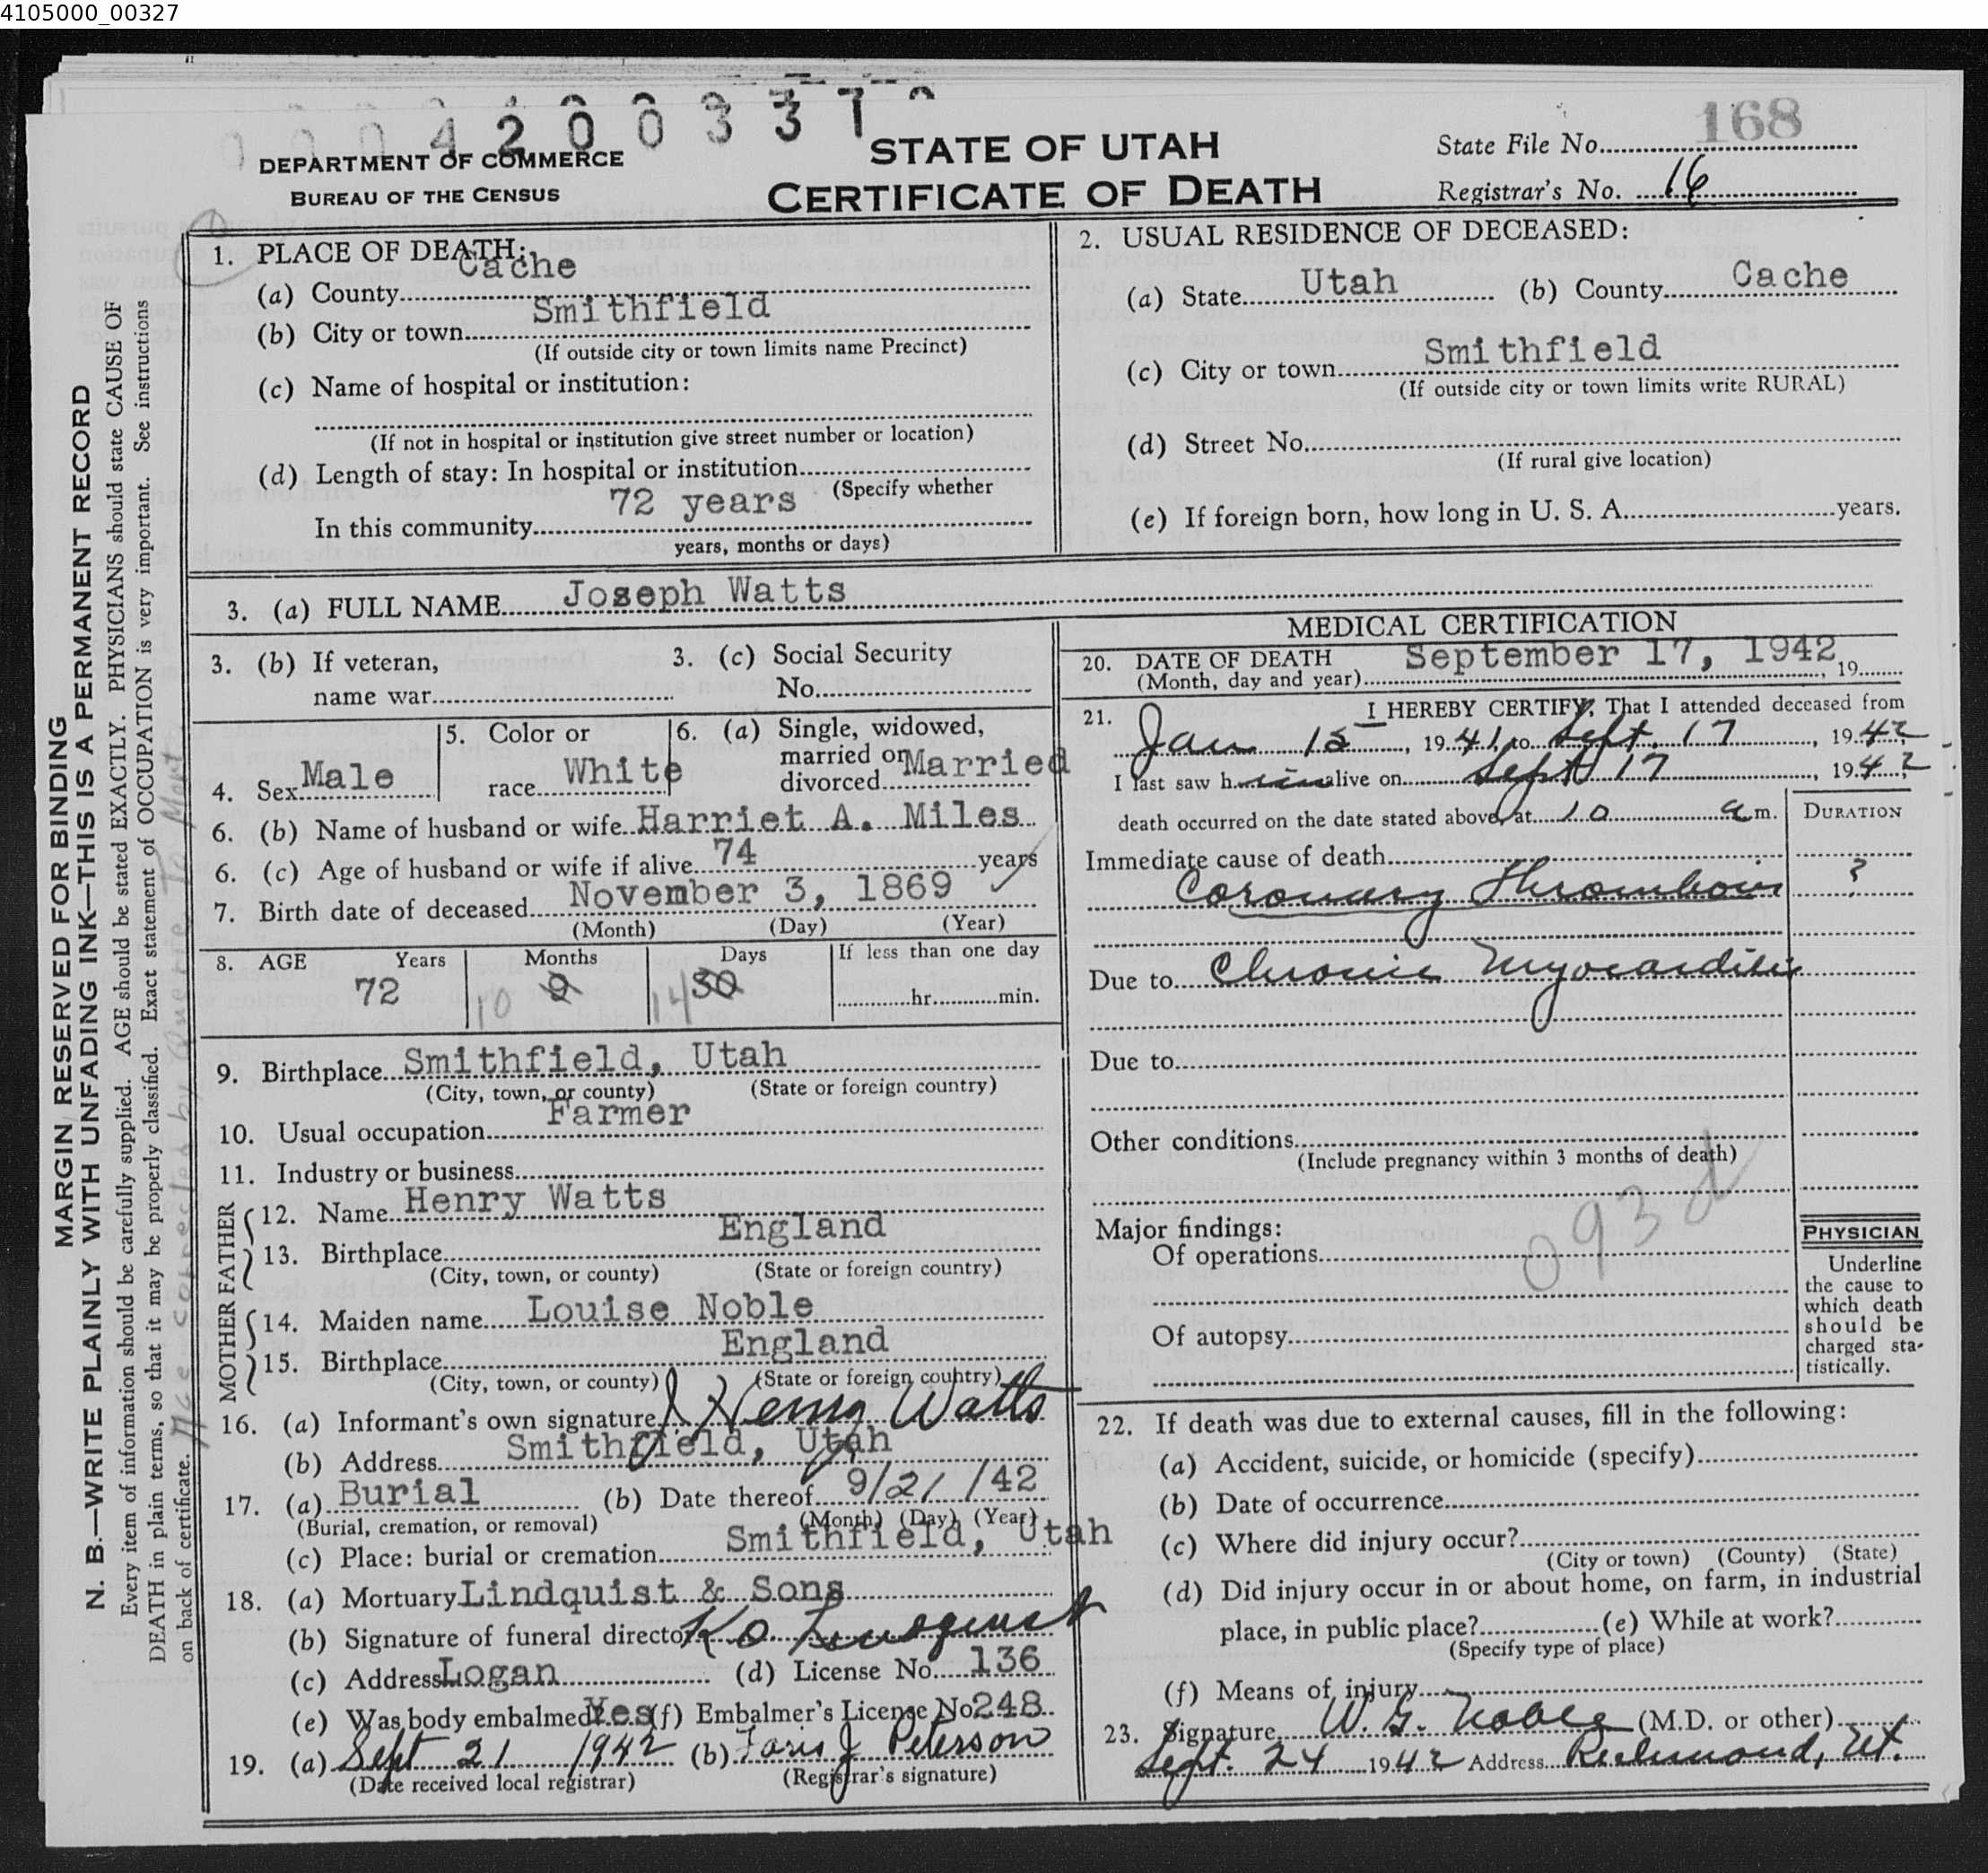 4105000_00327
0004200337
168
DEPARTMENT OF COMMERCE
BUREAU OF THE CENSUS
STATE OF UTAH
CERTIFICATE OF DEATH
State File No.
Registrar's No. 16
1. PLACE OF DEATH:
(a) County Cache
(b) City or town Smithfield
(If outside city or town limits name Precinct)
(c) Name of hospital or institution:
(If not in hospital or institution give street number or location)
(d) Length of stay: In hospital or institution
(Specify whether
In this community 72 years
years, months or days)
2. USUAL RESIDENCE OF DECEASED:
(a) State Utah (b) County Cache
(c) City or town Smithfield
(If outside city or town limits write RURAL)
(d) Street No.
(If rural give location)
(e) If foreign born, how long in U. S. A. years.
3. (a) FULL NAME Joseph Watts
3. (b) If veteran,
name war
3. (c) Social Security
No.
4. Sex Male
5. Color or
race White
6. (a) Single, widowed,
married or
divorced Married
6. (b) Name of husband or wife Harriet A. Miles
6. (c) Age of husband or wife if alive 74 years
7. Birth date of deceased November 3, 1869
(Month) (Day) (Year)
8. AGE Years Months Days If less than one day
72 10 9 14 30 hr. min.
9. Birthplace Smithfield, Utah
(City, town, or county) (State or foreign country)
10. Usual occupation Farmer
11. Industry or business
FATHER
12. Name Henry Watts
13. Birthplace England
(City, town, or county) (State or foreign country)
MOTHER
14. Maiden name Louise Noble
15. Birthplace England
(City, town, or county) (State or foreign country)
16. (a) Informant's own signature J Henry Watts
(b) Address Smithfield, Utah
17. (a) Burial (b) Date thereof 9/21/42
(Burial, cremation, or removal) (Month) (Day) (Year)
(c) Place: burial or cremation Smithfield, Utah
18. (a) Mortuary Lindquist & Sons
(b) Signature of funeral director K O Lindquist
(c) Address Logan (d) License No. 136
(e) Was body embalmed? Yes (f) Embalmer's License No 248
19. (a) Sept 21 1942 (b) J Peterson
(Date received local registrar) (Registrar's signature)
MEDICAL CERTIFICATION
20. DATE OF DEATH September 17, 1942, 19
(Month, day and year)
21. I HEREBY CERTIFY, That I attended deceased from
Jan 15, 1941, to Sept. 17, 1942
I last saw him alive on Sept 17, 1942
death occurred on the date stated above, at 10 a m.
DURATION
Immediate cause of death
Coronary Thrombosis ?
Due to Chronic Myocarditis
Due to
Other conditions
(Include pregnancy within 3 months of death)
093d
Major findings:
Of operations
Of autopsy
PHYSICIAN
Underline
the cause to
which death
should be
charged sta-
tistically.
22. If death was due to external causes, fill in the following:
(a) Accident, suicide, or homicide (specify)
(b) Date of occurrence
(c) Where did injury occur?
(City or town) (County) (State)
(d) Did injury occur in or about home, on farm, in industrial
place, in public place? (e) While at work?
(Specify type of place)
(f) Means of injury
23. Signature W. G. Noble (M.D. or other)
Sept. 24 1942 Address Richmond, Ut.
MARGIN RESERVED FOR BINDING
N. B.—WRITE PLAINLY WITH UNFADING INK—THIS IS A PERMANENT RECORD
Every item of information should be carefully supplied. AGE should be stated EXACTLY. PHYSICIANS should state CAUSE OF
DEATH in plain terms, so that it may be properly classified. Exact statement of OCCUPATION is very important. See instructions
on back of certificate.
Age corrected by Query To Mort